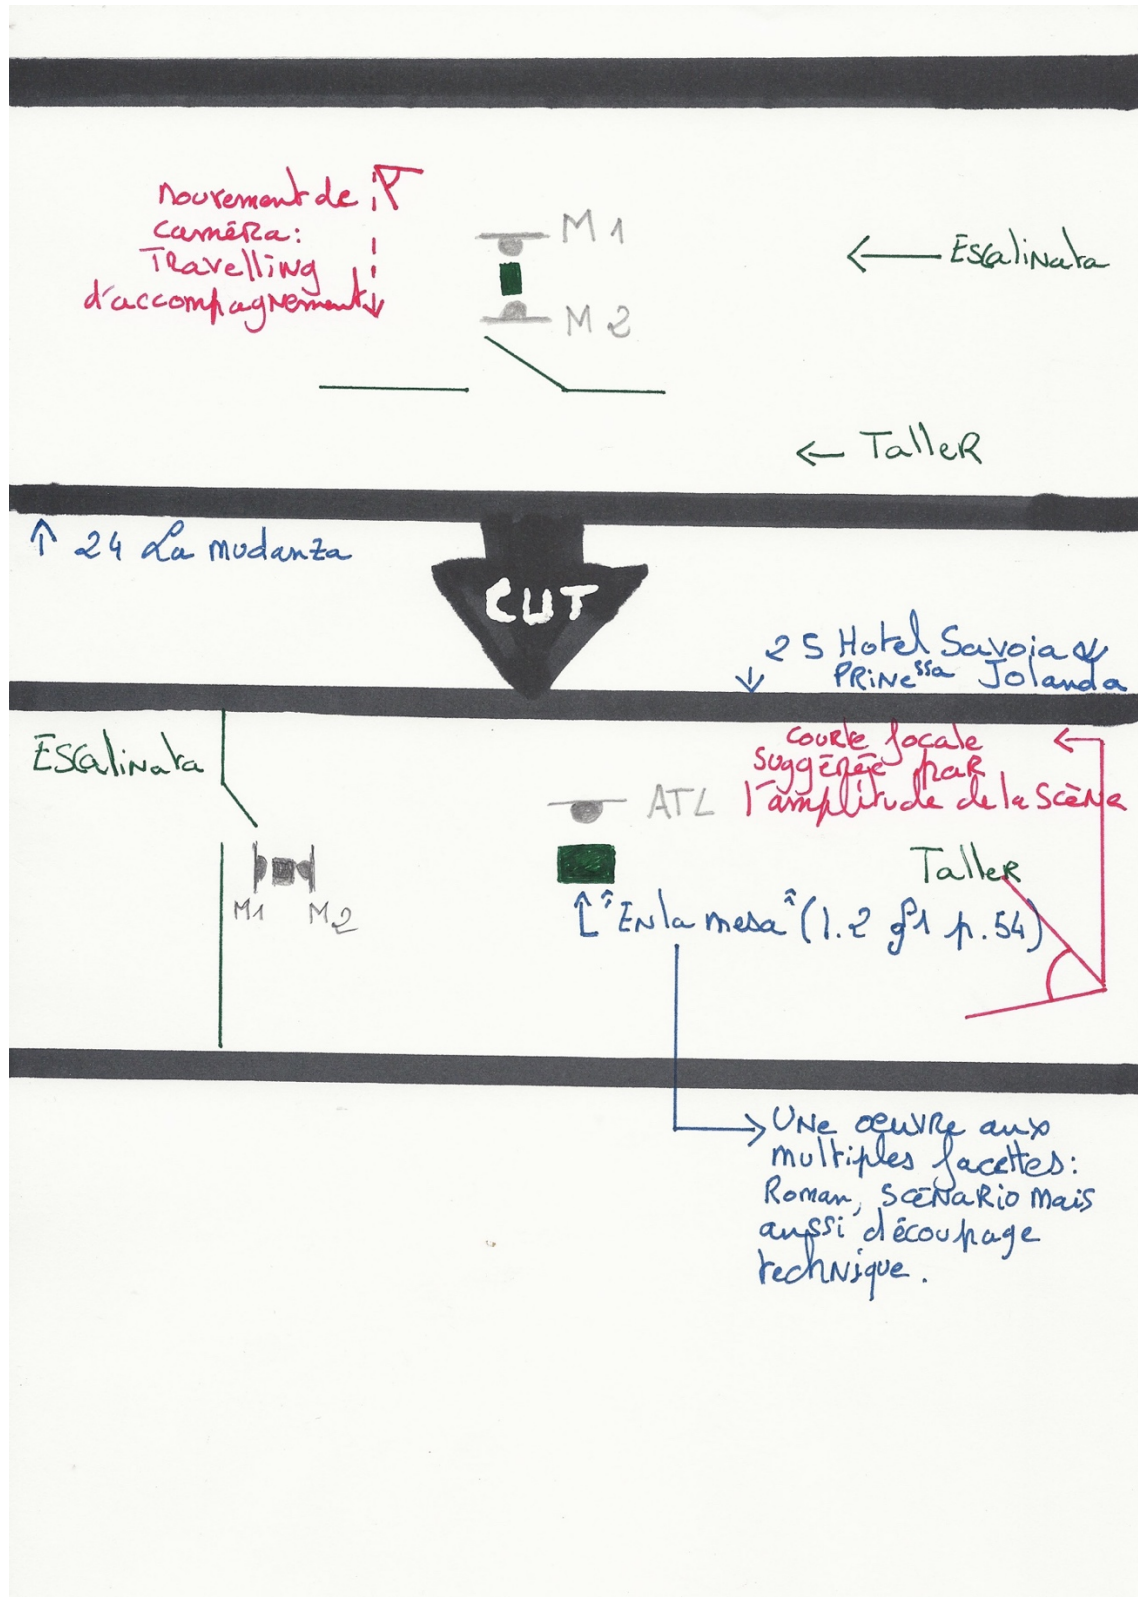 mouvement de
caméra:
Travelling
d'accompagnement
M1
M2
Escalinata
Taller
24 La mudanza
CUT
25 Hotel Savoia
PRiNe ssa Jolanda
Escalinata
courte focale
suggérée par
l'amplitude de la scène
ATL
Taller
M1 M2
"En la mesa" (l.2 §1 p.54)
Une œuvre aux
multiples facettes:
Roman, scénario mais
aussi découpage
technique.